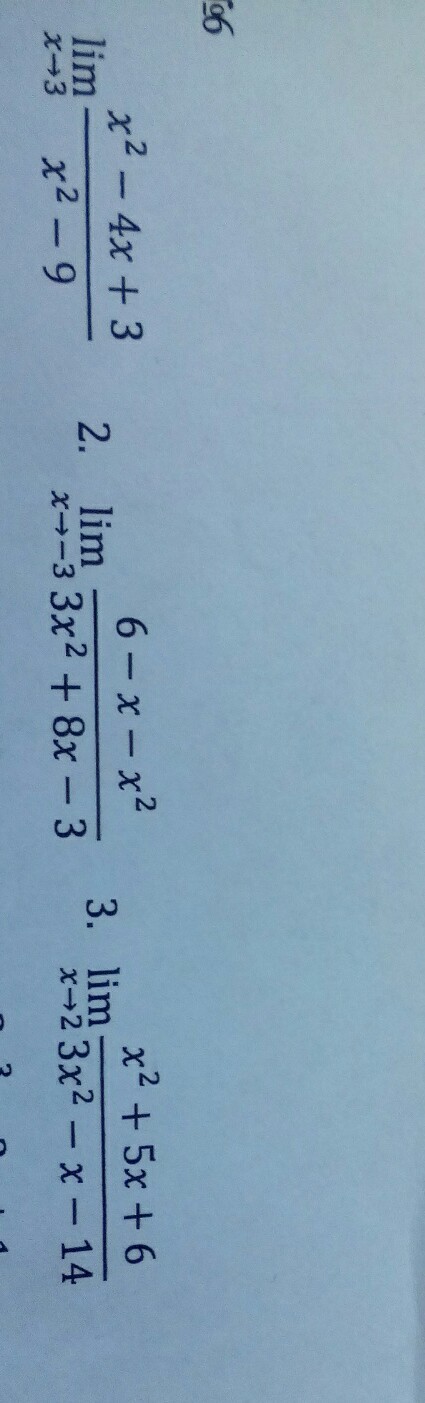 №6
lim x→3 (x² − 4x + 3)/(x² − 9) 2. lim x→−3 (6 − x − x²)/(3x² + 8x − 3) 3. lim x→2 (x² + 5x + 6)/(3x² − x − 14)